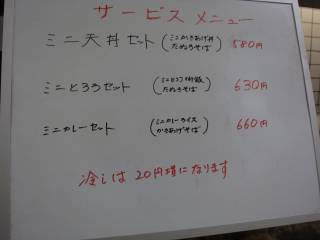 サービスメニュー
ミニ天丼セット (ミニかきあげ丼 たぬきそば) 580円
ミニとろろセット (ミニとろろ麦飯 たぬきそば) 630円
ミニカレーセット (ミニカレーライス かきあげそば) 660円
冷しは20円増になります